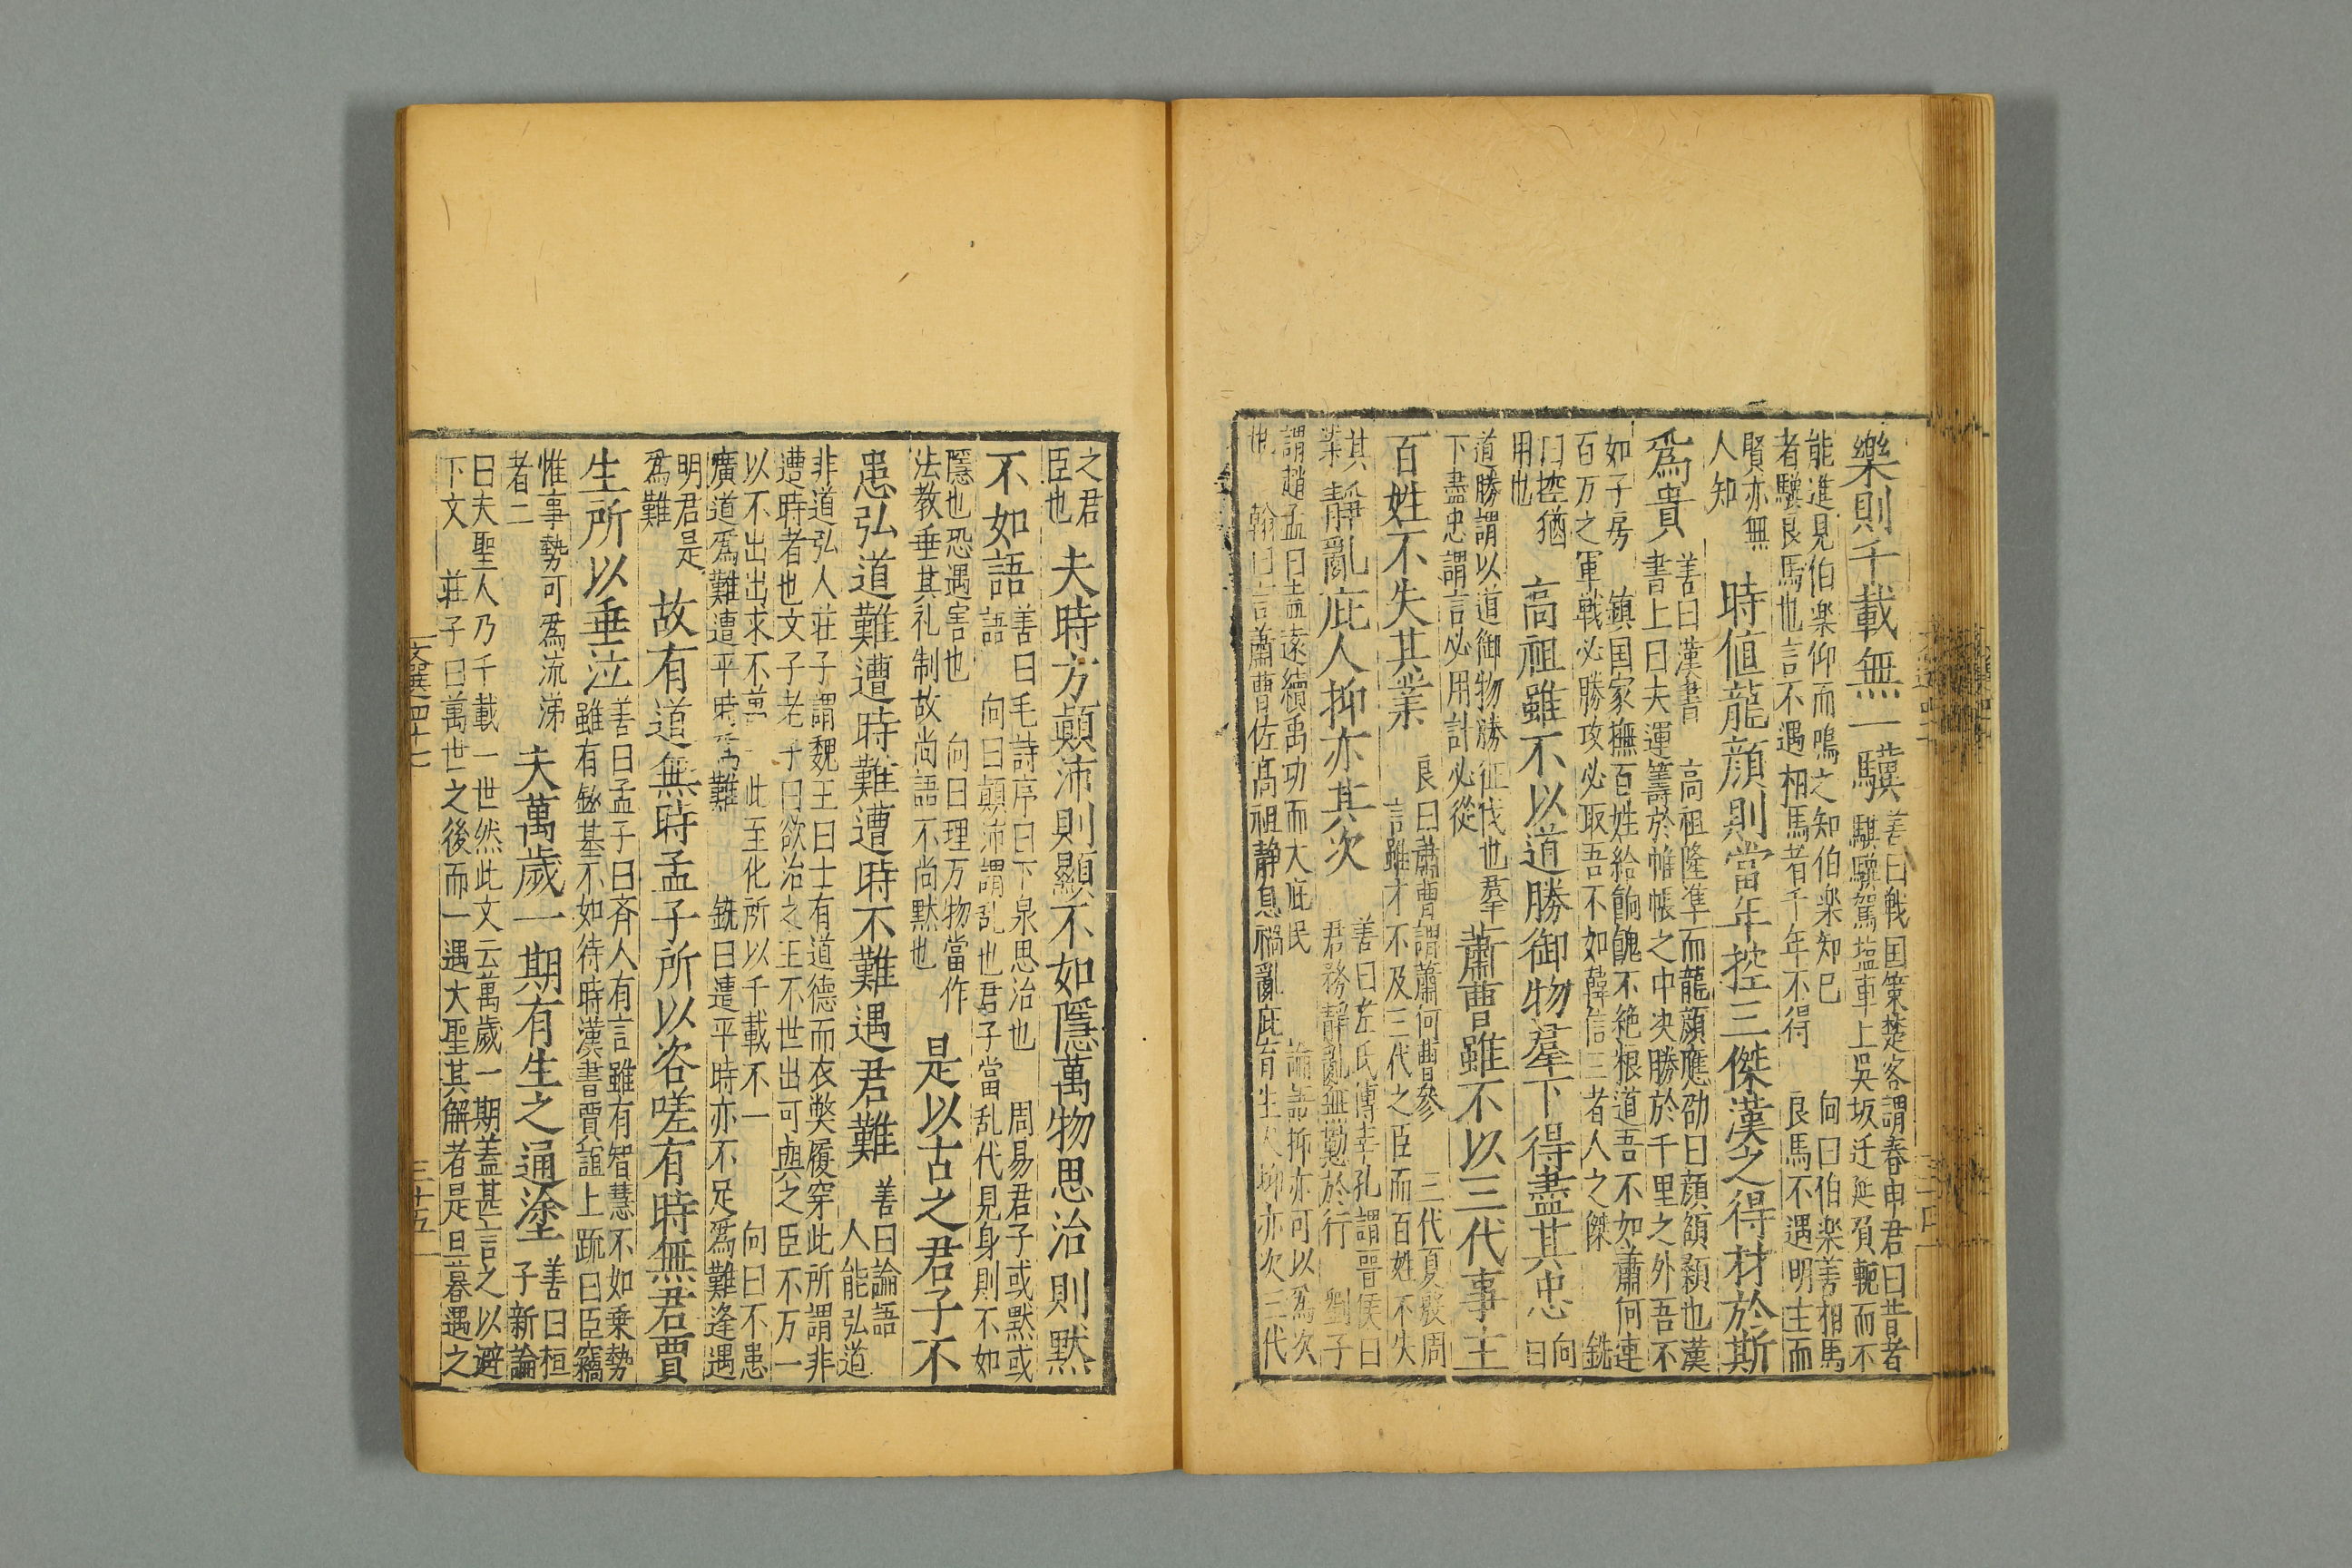 樂則千載無一驥善曰戰国策楚客謂春申君曰昔者
騏驥駕塩車上吳坂迁延負轅而不
能進見伯楽仰而鳴之知伯楽知已 向曰伯楽善相馬
者驥良馬也言不遇相馬者千年不得 良馬不遇明主而
賢亦無
人知 時值龍顔則當年控三傑漢之得材於斯
爲貴善曰漢書 高祖隆準而龍顔應劭曰顔頟顙也漢
書上曰夫運籌於帷帳之中决勝於千里之外吾不
如子房 鎮国家撫百姓給餉餽不絶粮道吾不如蕭何連
百万之軍戰必勝攻必取吾不如韓信三者人之傑 銑
曰控猶
用也 高祖雖不以道勝御物羣下得盡其忠向
曰
道勝謂以道御物勝征伐也羣
下盡忠謂言必用計必從 蕭曹雖不以三代事主
百姓不失其業良曰蕭曹謂蕭何曹參 三代夏殷周
言雖才不及三代之臣而百姓不失
其
業 靜亂庇人抑亦其次善曰左氏傳士孔謂晋侯曰
君務靜亂無勤於行 劉子
謂趙孟曰盍遠績禹功而大庇民 論語抑亦可以爲次
也 翰曰言蕭曹佐髙祖静息禍亂庇育生人抑亦次三代
之君
臣也 夫時方顛沛則顯不如隱萬物思治則黙
不如語善曰毛詩序曰下泉思治也 周易君子或黙或
語 向曰顛沛謂乱也君子當乱代見身則不如
隱也恐遇害也 向曰理万物當作
法教垂其礼制故尚語不尚黙也 是以古之君子不
患弘道難遭時難遭時不難遇君難善曰論語
人能弘道
非道弘人莊子謂魏王曰士有道德而衣弊履穿此所謂非
遭時者也文子老子曰欲治之主不世出可與之臣不万一
以不出出求不萬一 此至化所以千載不一 向曰不患
廣道爲難遭平時爲難 銑曰遭平時亦不足爲難逢遇
明君是
爲難 故有道無時孟子所以咨嗟有時無君賈
生所以垂泣善曰孟子曰斉人有言雖有智慧不如乗勢
雖有鎡基不如待時漢書賈誼上䟽曰臣竊
惟事勢可爲流涕
者二 夫萬歲一期有生之通塗善曰桓
子新論
曰夫聖人乃千載一世然此文云萬歲一期蓋甚言之以避
下文 莊子曰萬世之後而一遇大聖其解者是旦暮遇之
文選四十七 三十五